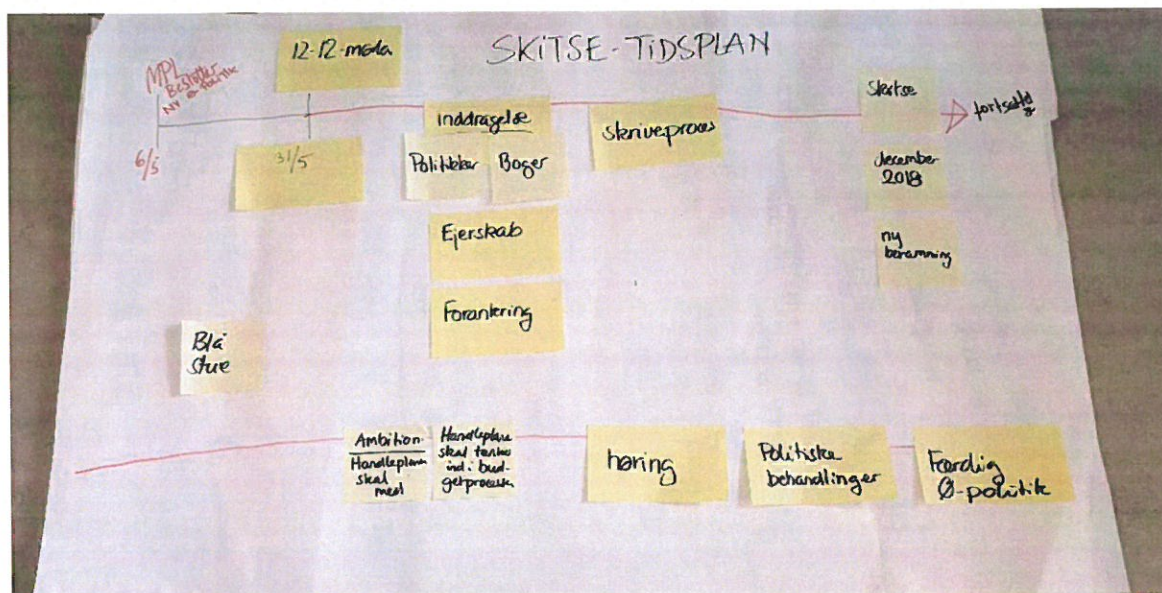 SKITSE-TIDSPLAN
12-12-møda
MPL
Beslutter
NY Ø-politik
6/5
31/5
inddragelse
Politikker
Boger
Ejerskab
Forankring
skriveproces
Skitse
fortsættelse
december
2018
ny
beramning
Blå
stue
Ambition
Handleplan
skal
med
Handleplane
skal tænke
ind i bud-
getprocessen
høring
Politiske
behandlinger
Færdig
Ø-politik